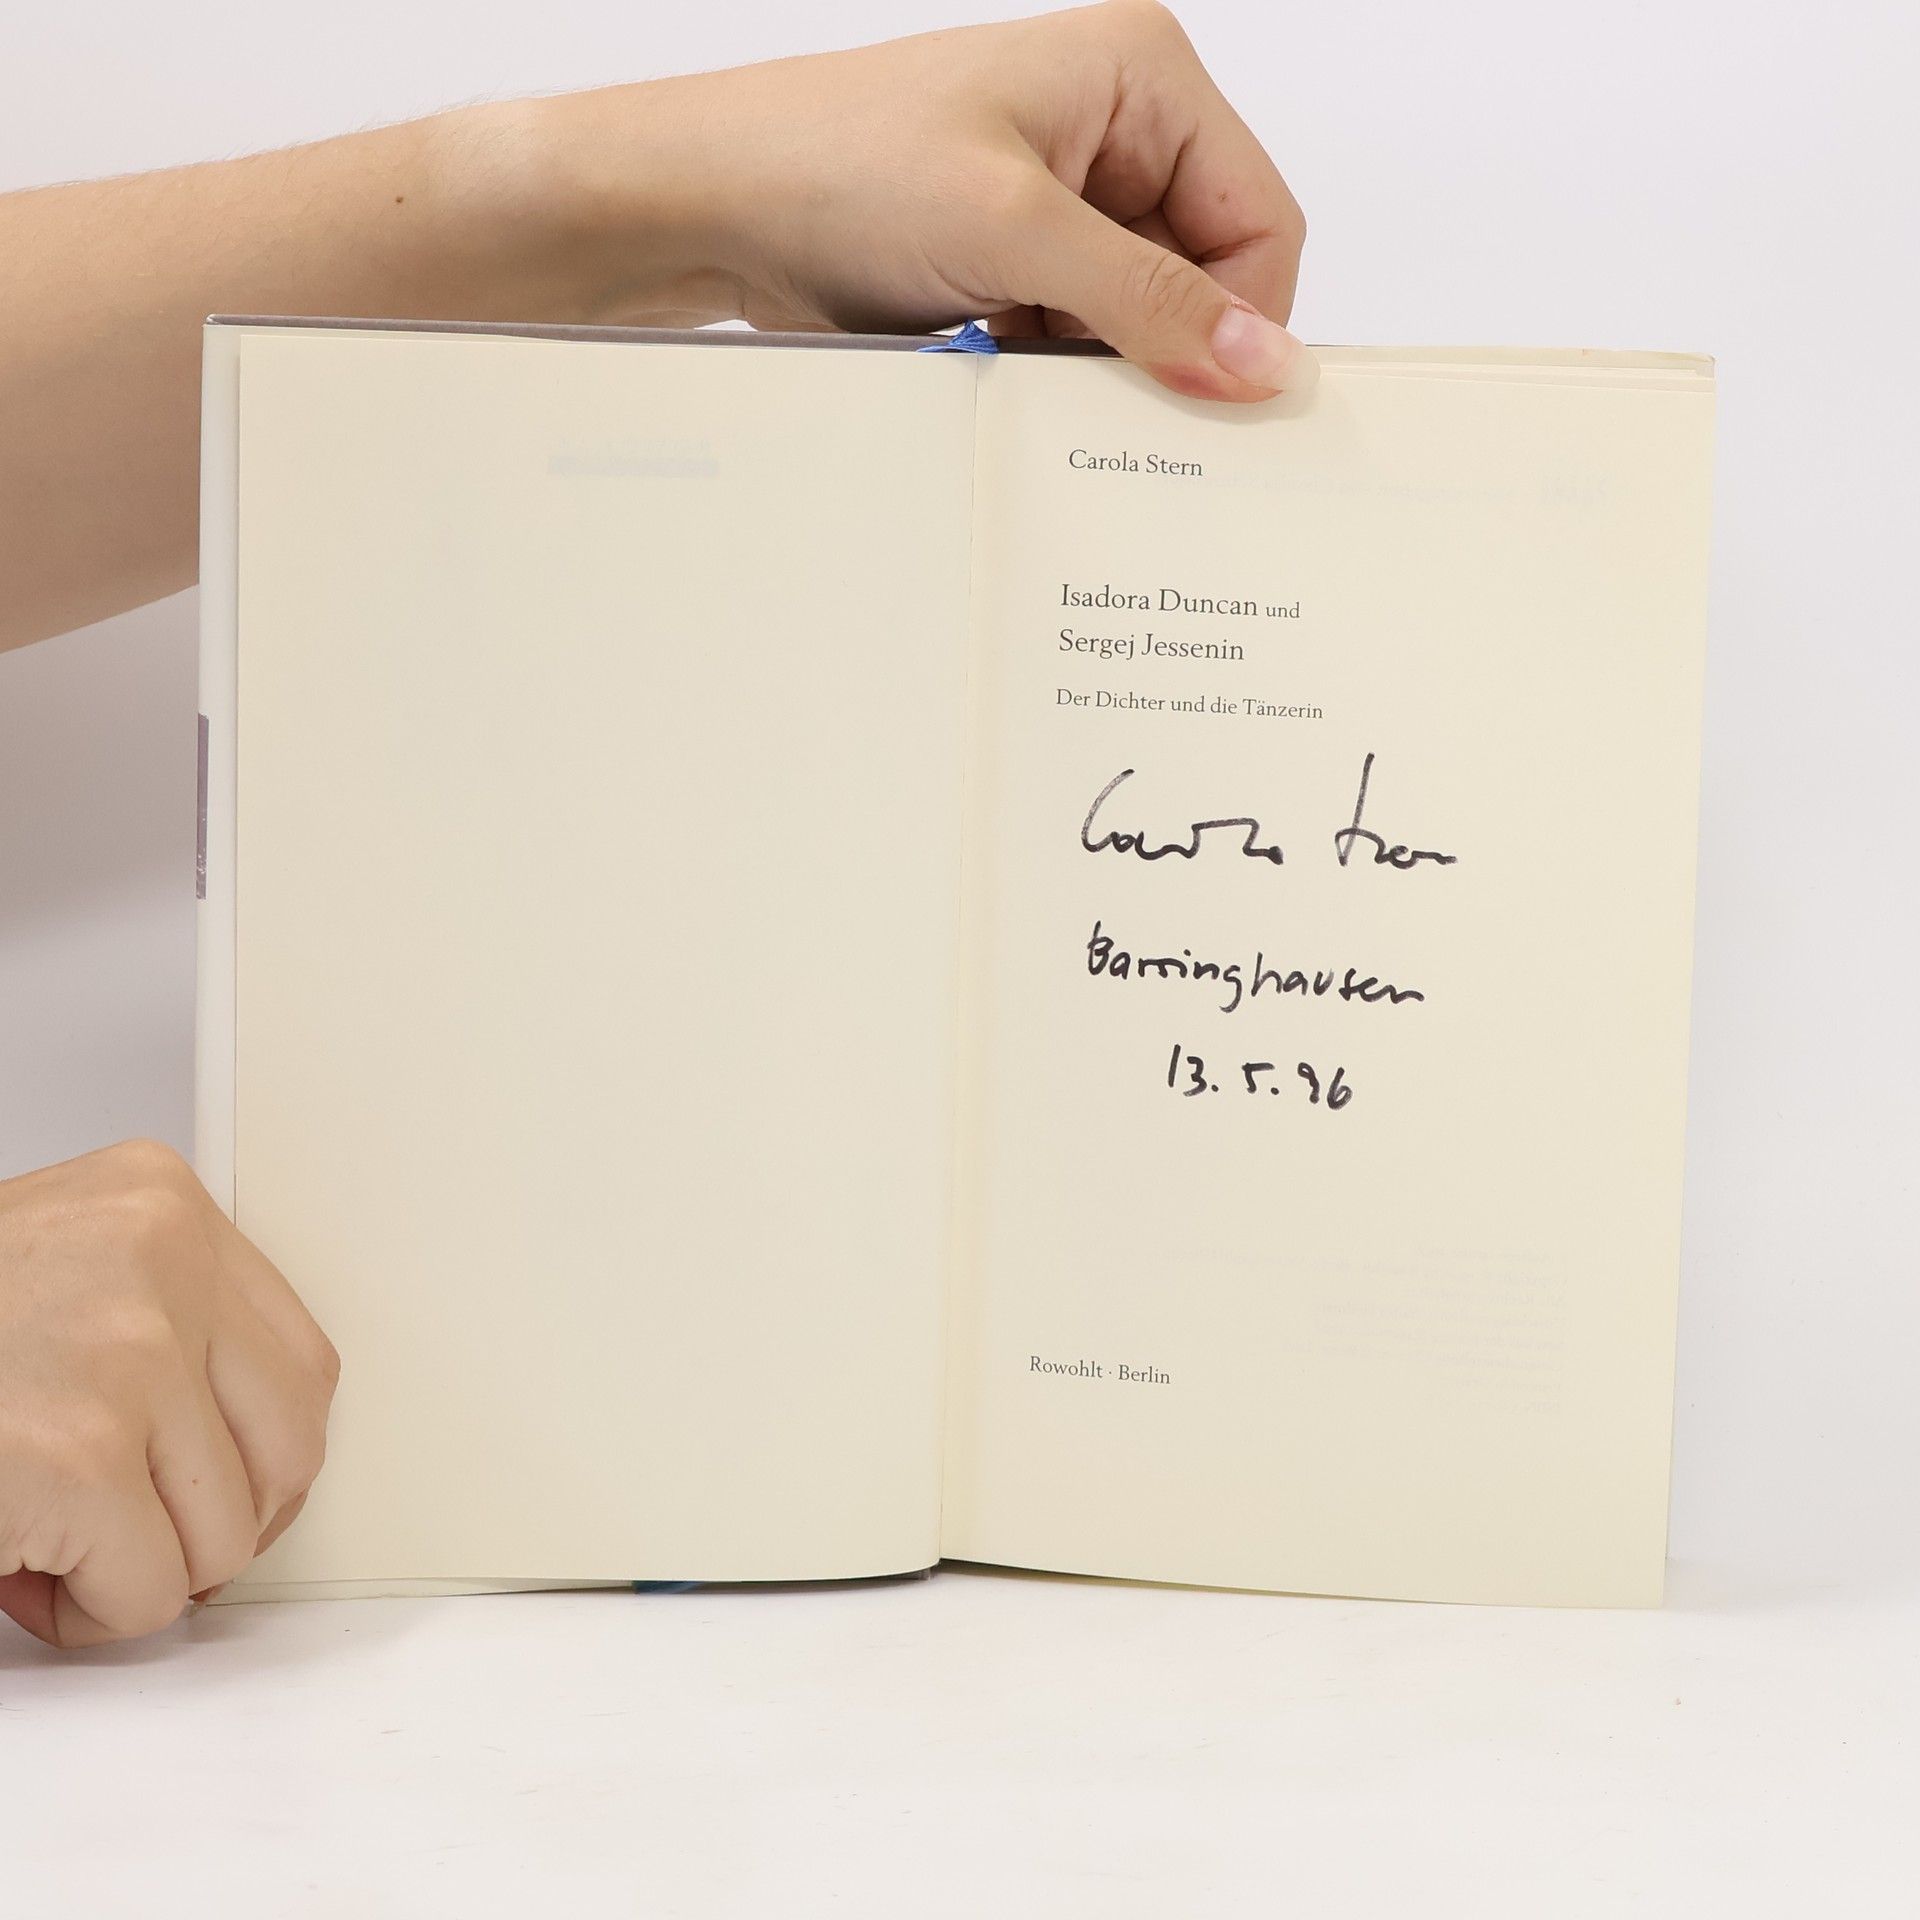 Carola Stern
Isadora Duncan und
Sergej Jessenin
Der Dichter und die Tänzerin
Carola Stern
Barsinghausen
13. 5. 96
Rowohlt · Berlin